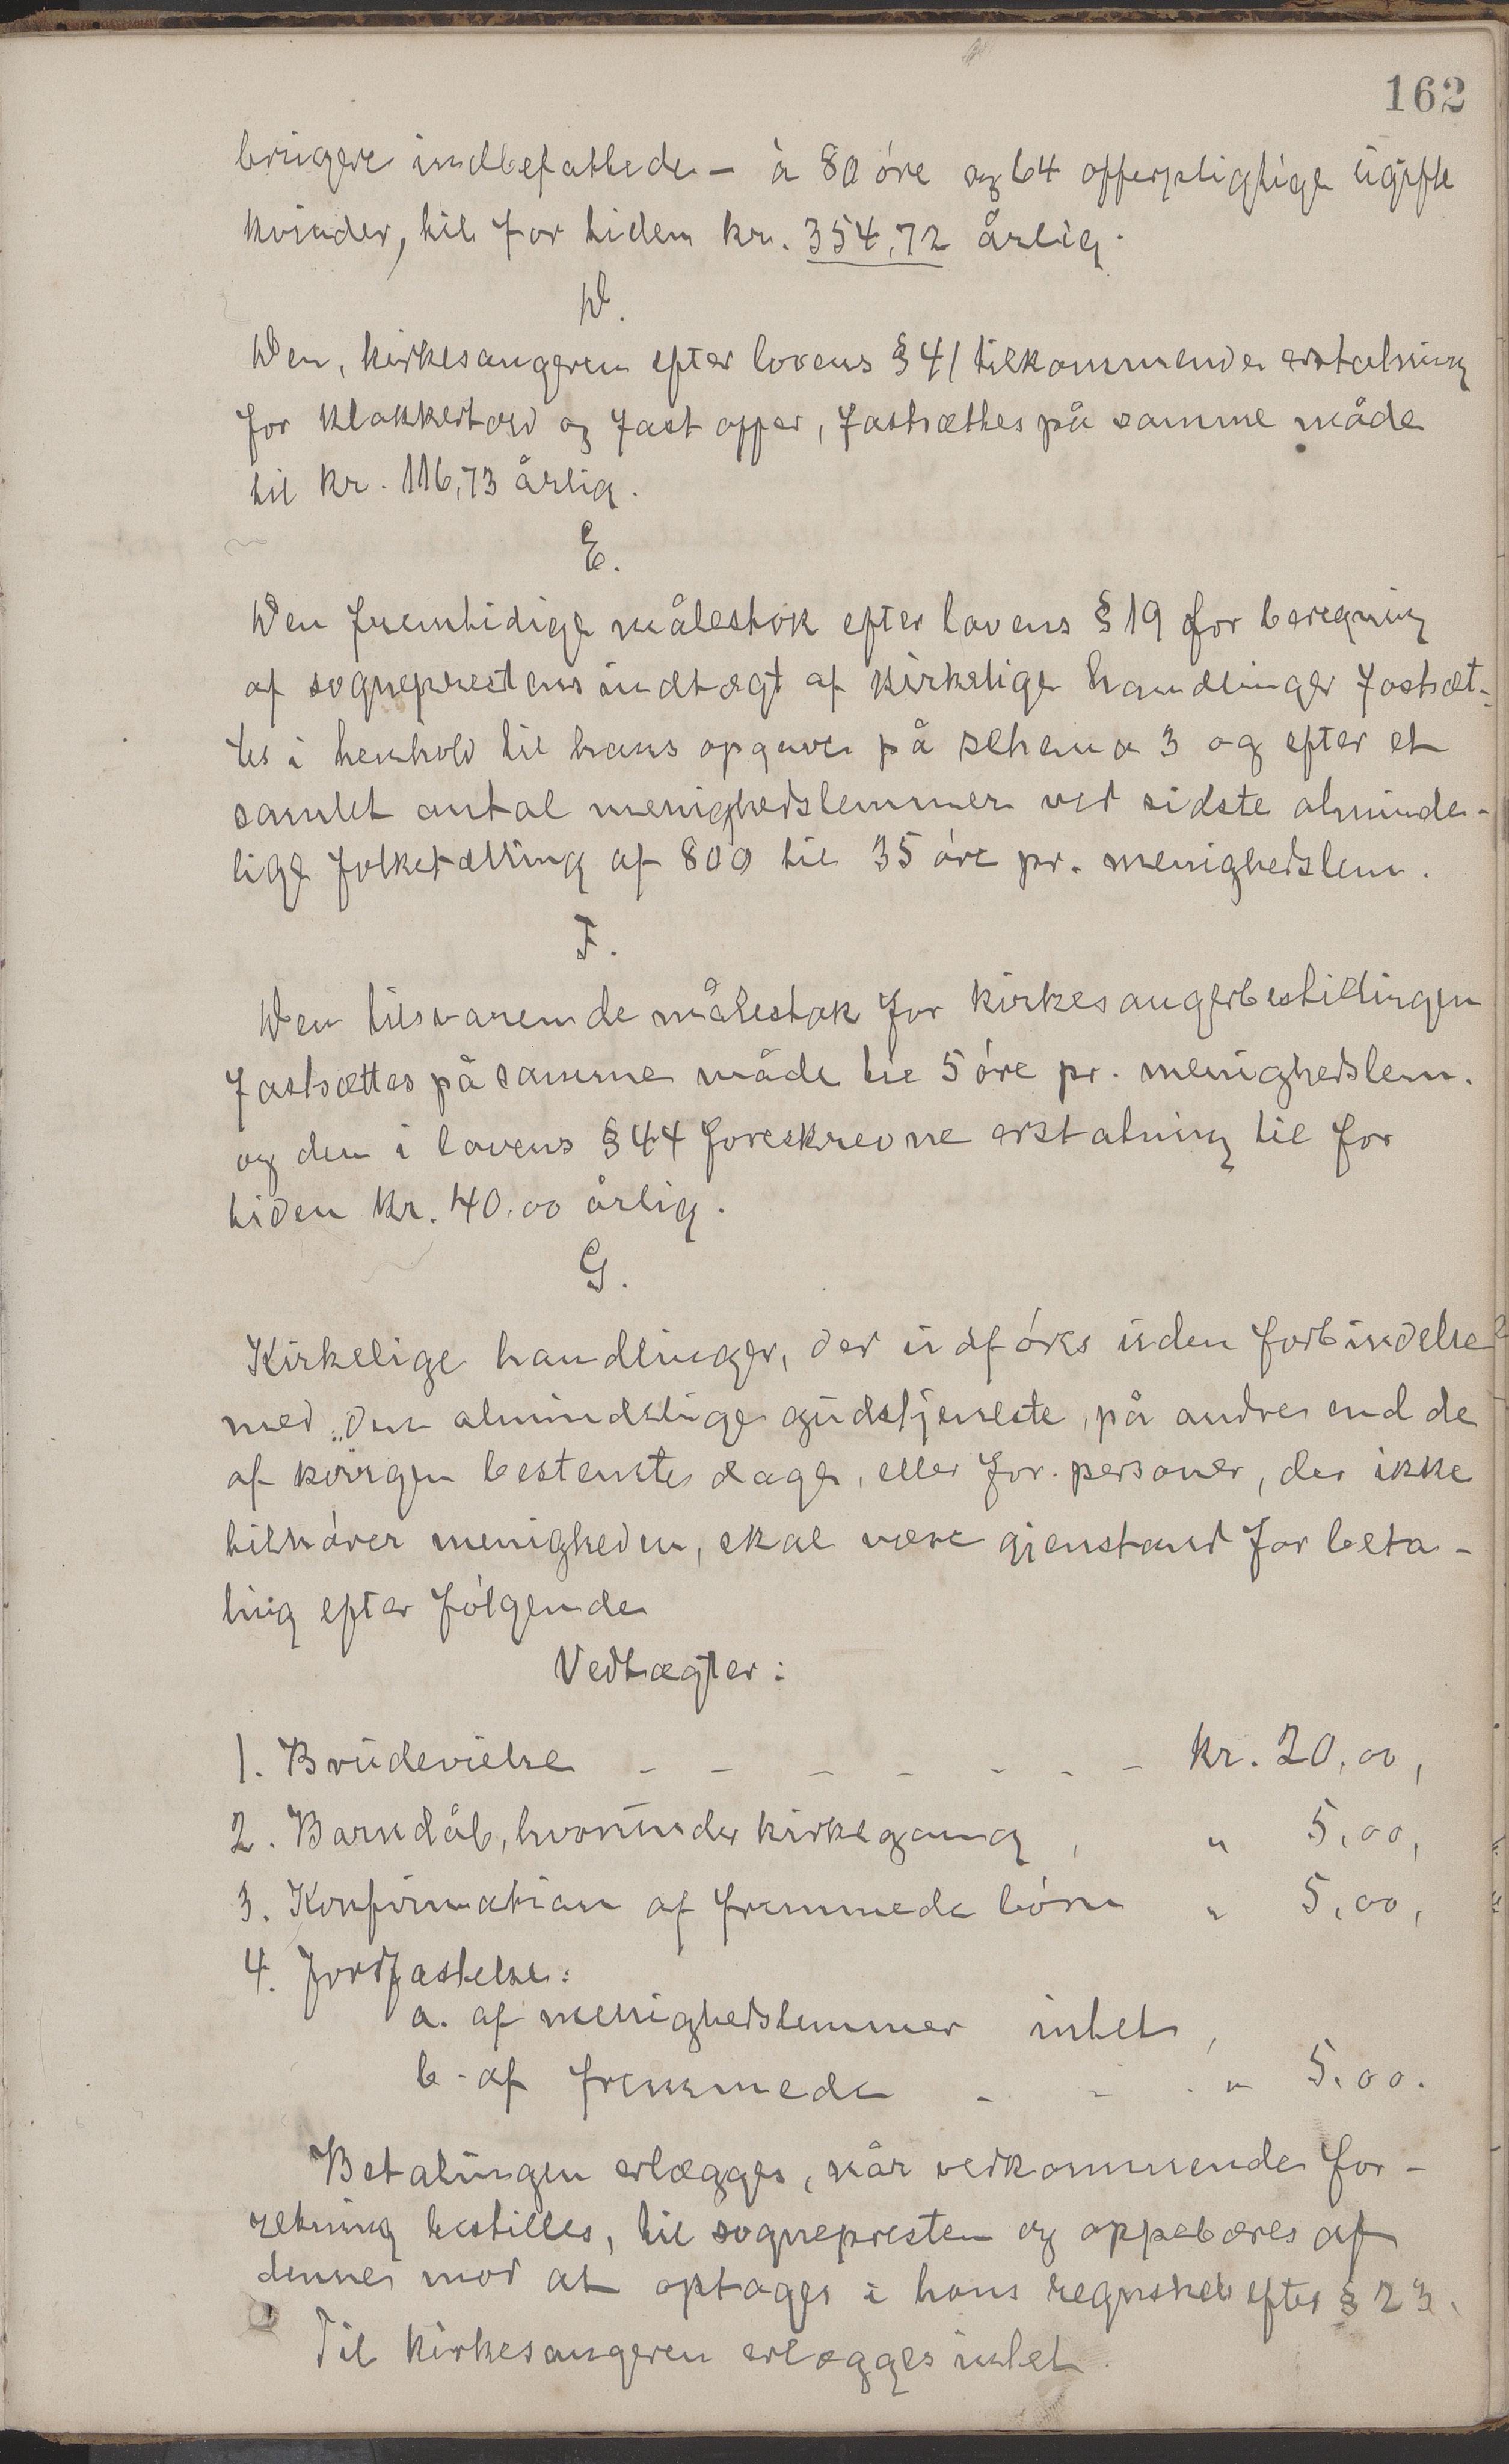 162
brugere indbefattede - à 80 øre og 64 offerpligtige ugifte
kvinder, til for tiden kr. 354,72 årlig.
D.
Den, kirkesangeren efter lovens § 41 tilkommende erstatning
for klokkertold og fast offer, fastsættes på samme måde
til kr. 116,73 årlig.
E.
Den fremtidige målestok efter lovens § 19 for beregning
af sogneprestens indtægt af kirkelige handlinger fastsæt-
tes i henhold til hans opgave på schema 3 og efter et
samlet antal menighedslemmer ved sidste alminde-
lige folketælling af 800 til 35 øre pr. menighedslem.
F.
Den tilsvarende målestok for kirkesangerbestillingen
fastsættes på samme måde til 5 øre pr. menighedslem.
og den i lovens § 44 foreskrevne erstatning til for
tiden kr. 40.00 årlig.
G.
Kirkelige handlinger, der udføres uden forbindelse
med den almindelige gudstjeneste, på andre end de
af kongen bestemte dage, eller for personer, der ikke
tilhører menigheden, skal være gjenstand for beta-
ling efter følgende
Vedtægter:
1. Brudevielse - - - - - - - kr. 20,00,
2. Barndåb, hvorunder kirkegang, " 5,00,
3. Konfirmation af fremmede børn " 5,00,
4. Jordfæstelse:
a. af menighedslemmer intet,
b. af fremmede - - - " 5.00.
Betalingen erlægges, når vedkommende for-
retning bestilles, til sognepresten og oppebæres af
denne mod at optages i hans regnskab efter § 23.
Til kirkesangeren erlægges intet.